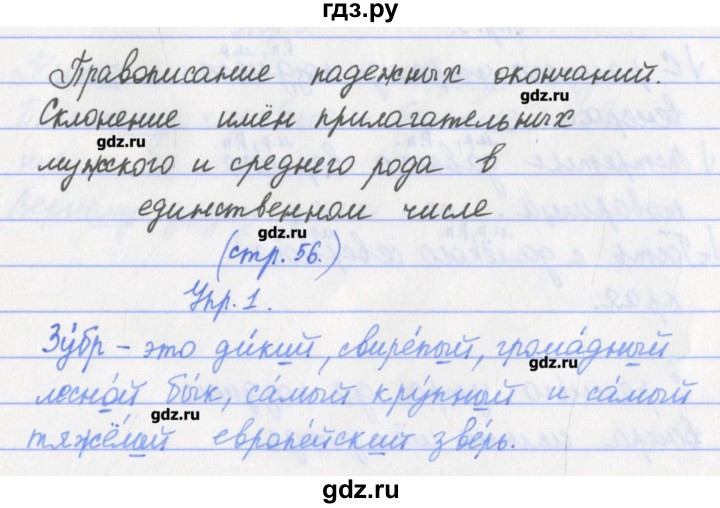 гдз.ру
Правописание падежных окончаний.
gdz.ru
Склонение имён прилагательных
gdz.ru
мужского и среднего рода в
единственном числе
gdz.ru
(стр. 56.)
Упр. 1.
Зу́бр – это ди́кий, свире́пый, грома́дный
gdz.ru
лесно́й бы́к, са́мый кру́пный и са́мый
gdz.ru
тяжёлый европе́йский зве́рь.
gdz.ru